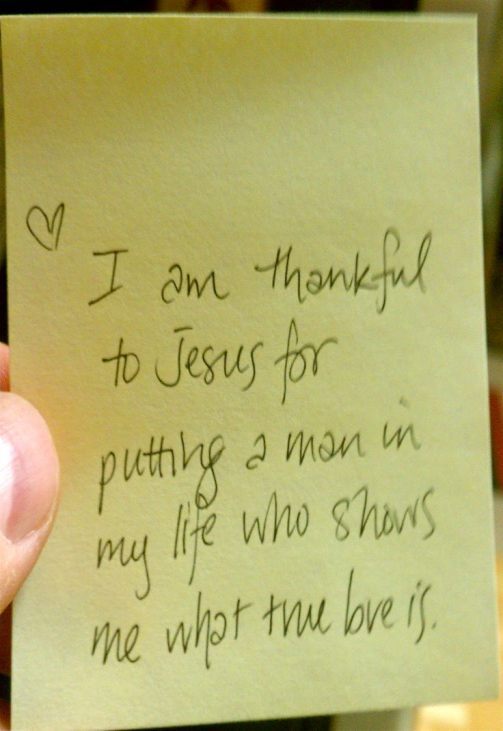 I am thankful
to Jesus for
putting a man in
my life who shows
me what true love is.